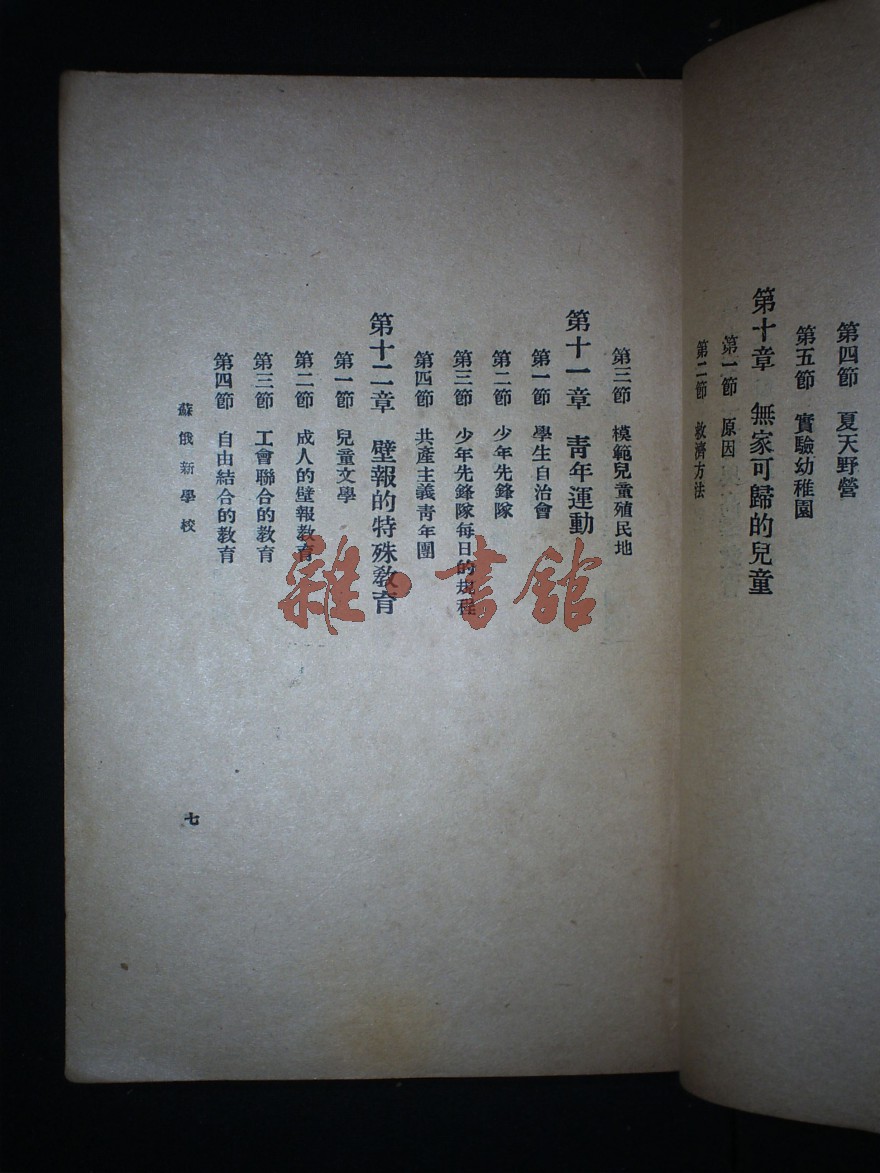 第四節　夏天野營
第五節　實驗幼稚園
第十章　無家可歸的兒童
第一節　原因
第二節　救濟方法
第三節　模範兒童殖民地
第十一章　青年運動
第一節　學生自治會
第二節　少年先鋒隊
第三節　少年先鋒隊每日的規程
第四節　共產主義青年團
第十二章　壁報的特殊教育
第一節　兒童文學
第二節　成人的壁報教育
第三節　工會聯合的教育
第四節　自由結合的教育
蘇俄新學校
七
雜·書館